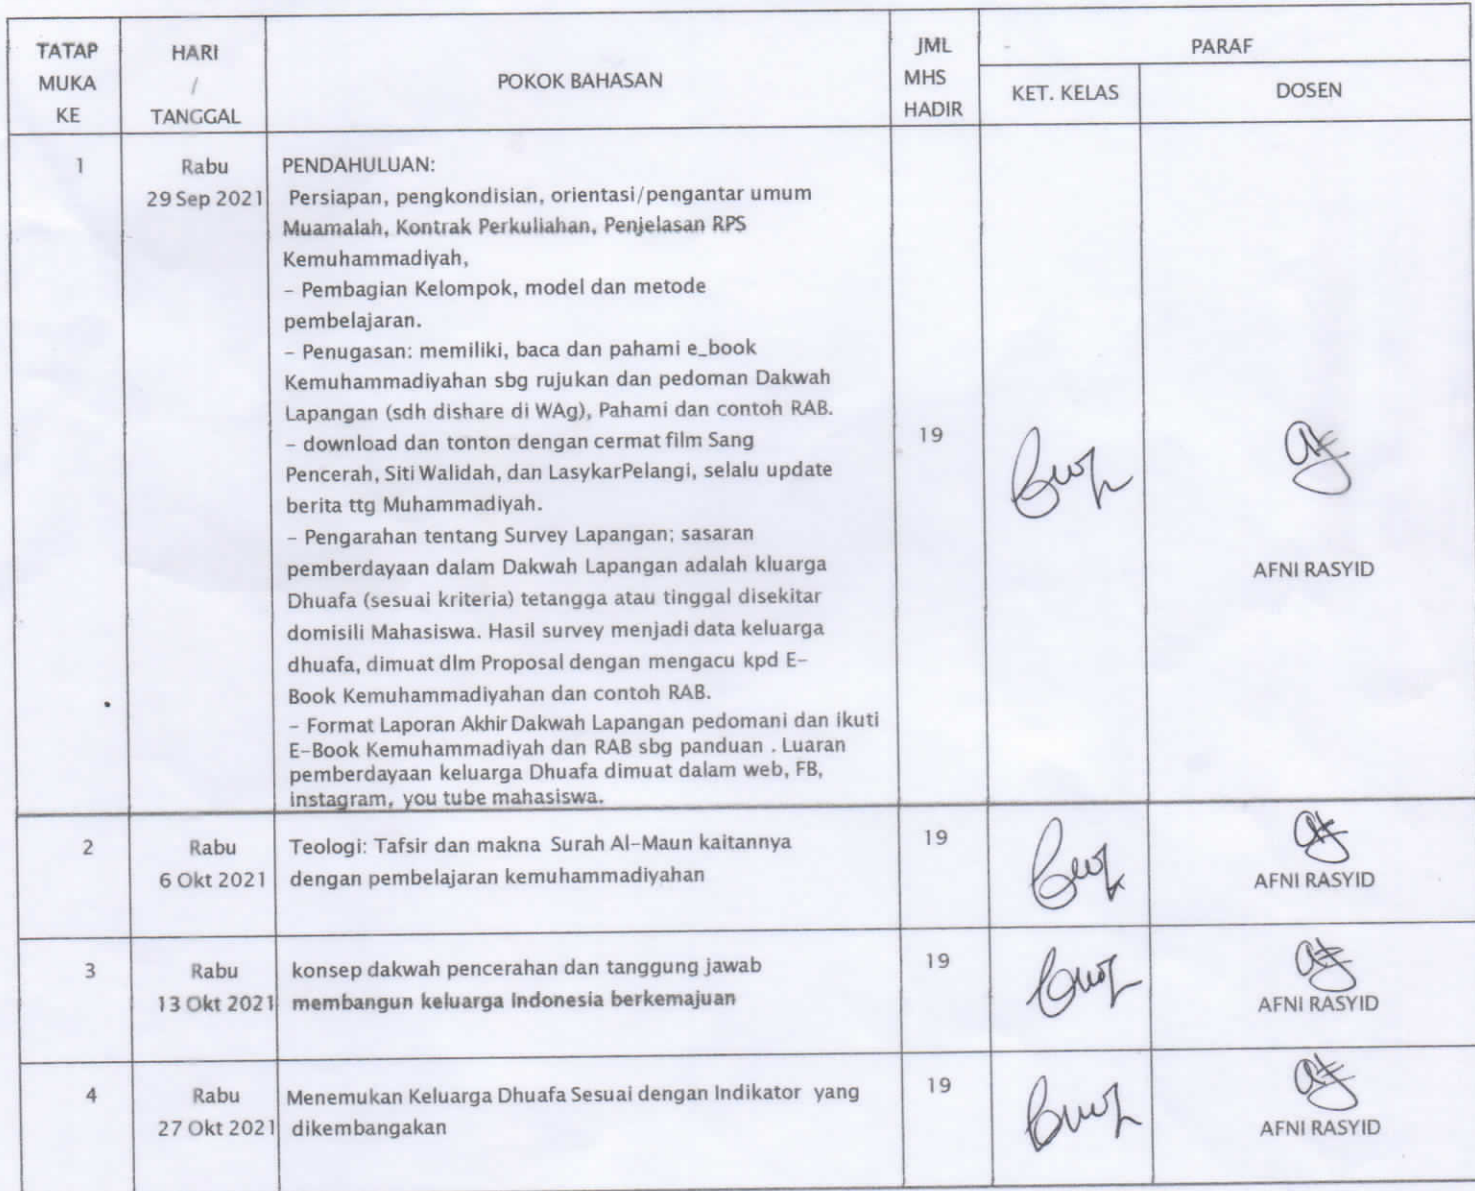 TATAP MUKA KE
HARI / TANGGAL
POKOK BAHASAN
JML MHS HADIR
PARAF
KET. KELAS
DOSEN
1
Rabu
29 Sep 2021
PENDAHULUAN:
Persiapan, pengkondisian, orientasi/pengantar umum
Muamalah, Kontrak Perkuliahan, Penjelasan RPS
Kemuhammadiyah,
- Pembagian Kelompok, model dan metode
pembelajaran.
- Penugasan: memiliki, baca dan pahami e_book
Kemuhammadiyahan sbg rujukan dan pedoman Dakwah
Lapangan (sdh dishare di WAg), Pahami dan contoh RAB.
- download dan tonton dengan cermat film Sang
Pencerah, Siti Walidah, dan LasykarPelangi, selalu update
berita ttg Muhammadiyah.
- Pengarahan tentang Survey Lapangan; sasaran
pemberdayaan dalam Dakwah Lapangan adalah kluarga
Dhuafa (sesuai kriteria) tetangga atau tinggal disekitar
domisili Mahasiswa. Hasil survey menjadi data keluarga
dhuafa, dimuat dlm Proposal dengan mengacu kpd E-
Book Kemuhammadiyahan dan contoh RAB.
- Format Laporan Akhir Dakwah Lapangan pedomani dan ikuti
E-Book Kemuhammadiyah dan RAB sbg panduan . Luaran
pemberdayaan keluarga Dhuafa dimuat dalam web, FB,
instagram, you tube mahasiswa.
19
AFNI RASYID
2
Rabu
6 Okt 2021
Teologi: Tafsir dan makna Surah Al-Maun kaitannya
dengan pembelajaran kemuhammadiyahan
19
AFNI RASYID
3
Rabu
13 Okt 2021
konsep dakwah pencerahan dan tanggung jawab
membangun keluarga Indonesia berkemajuan
19
AFNI RASYID
4
Rabu
27 Okt 2021
Menemukan Keluarga Dhuafa Sesuai dengan Indikator yang
dikembangakan
19
AFNI RASYID